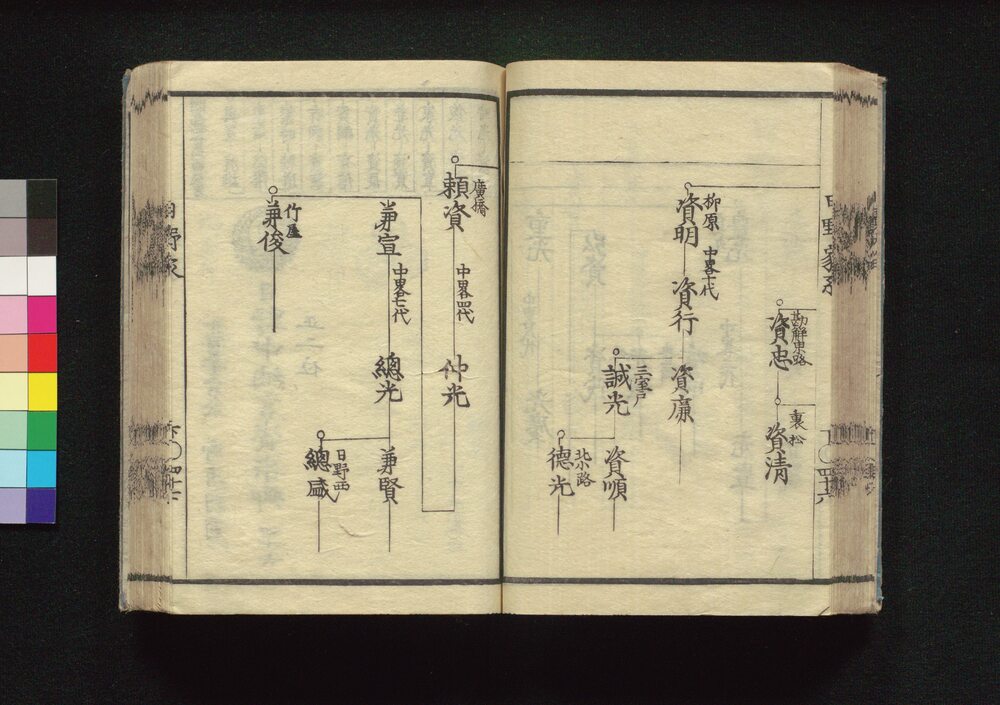 勘解由路
資忠
裏松
資清
柳原
資明
中畧十代
資行
資廉
三室戸
誠光
資順
北小路
德光
廣橋
頼資
中畧四代
仲光
兼宣
中畧七代
總光
兼賢
日野西
總盛
竹屋
兼俊